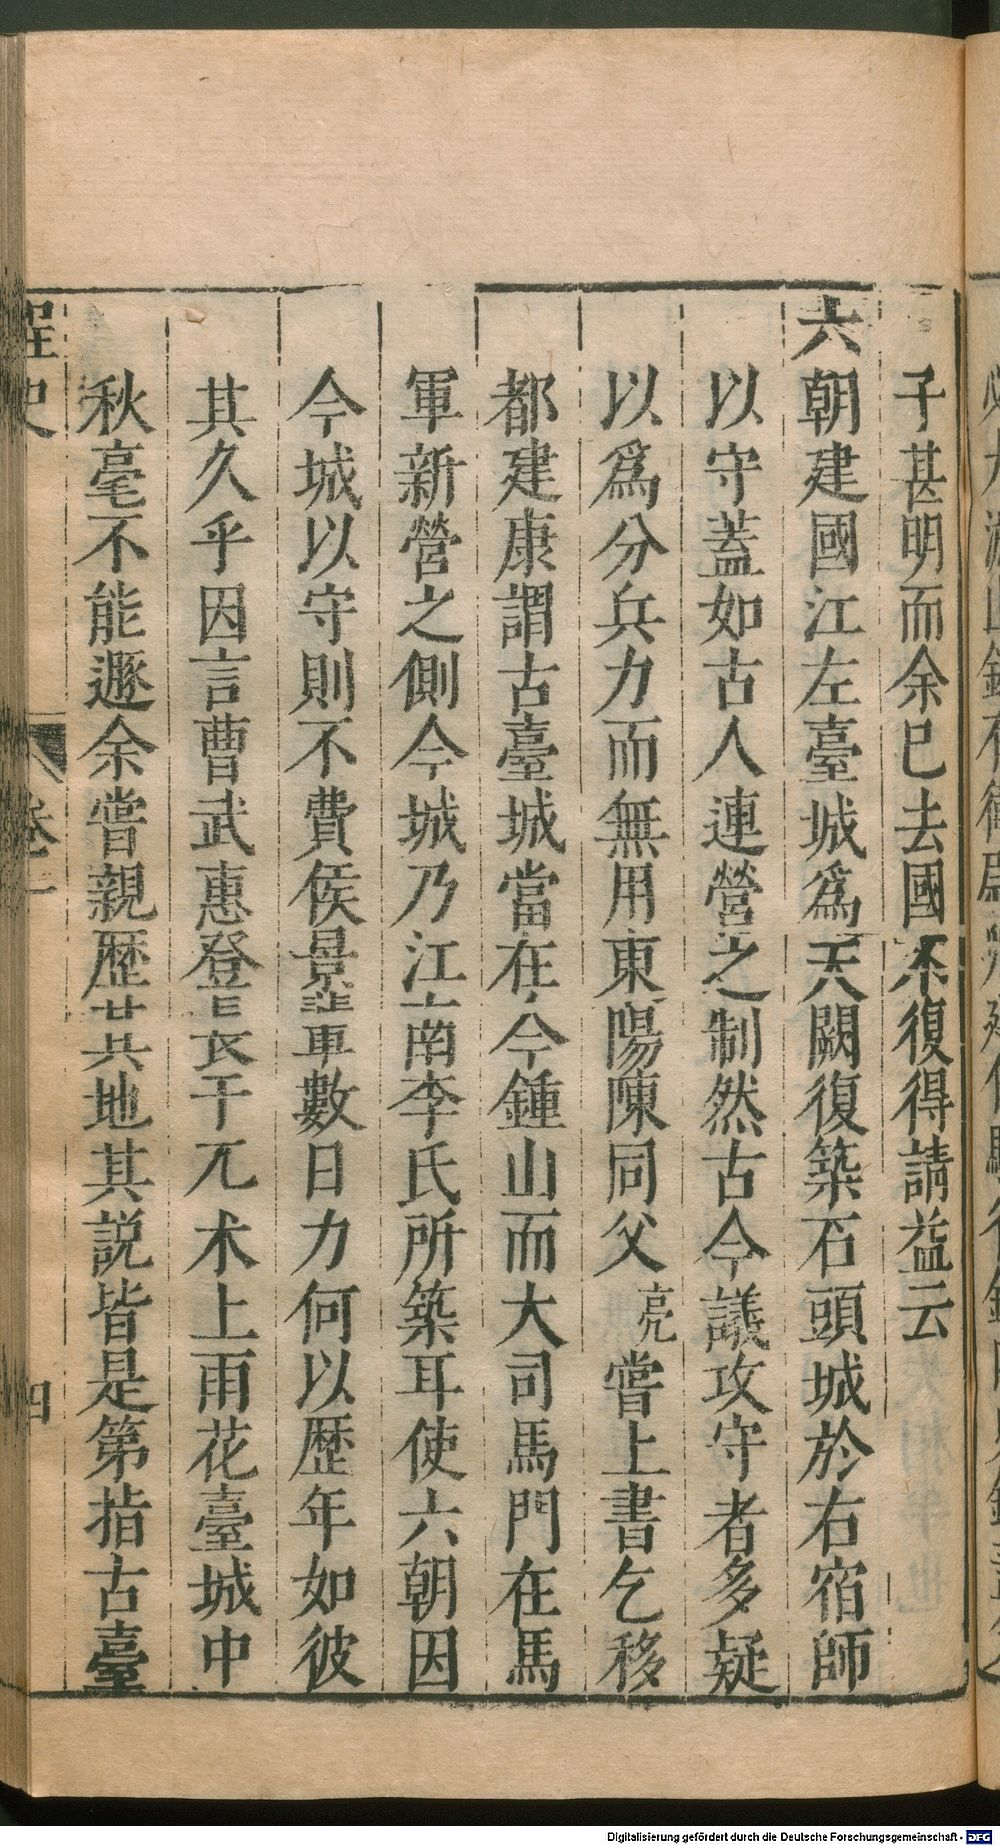 子甚明而余已去國不復得請益云
六朝建國江左臺城爲天闕復築石頭城於右宿師
以守蓋如古人連營之制然古今議攻守者多疑
以爲分兵力而無用東陽陳同父亮嘗上書乞移
都建康謂古臺城當在今鍾山而大司馬門在馬
軍新營之側今城乃江南李氏所築耳使六朝因
今城以守則不費侯景輩數日力何以歴年如彼
其久乎因言曹武惠登長干兀术上雨花臺城中
秋毫不能遯余嘗親歴其地其説皆是第指古臺
桯史
卷一
四
Digitalisierung gefördert durch die Deutsche Forschungsgemeinschaft - DFG